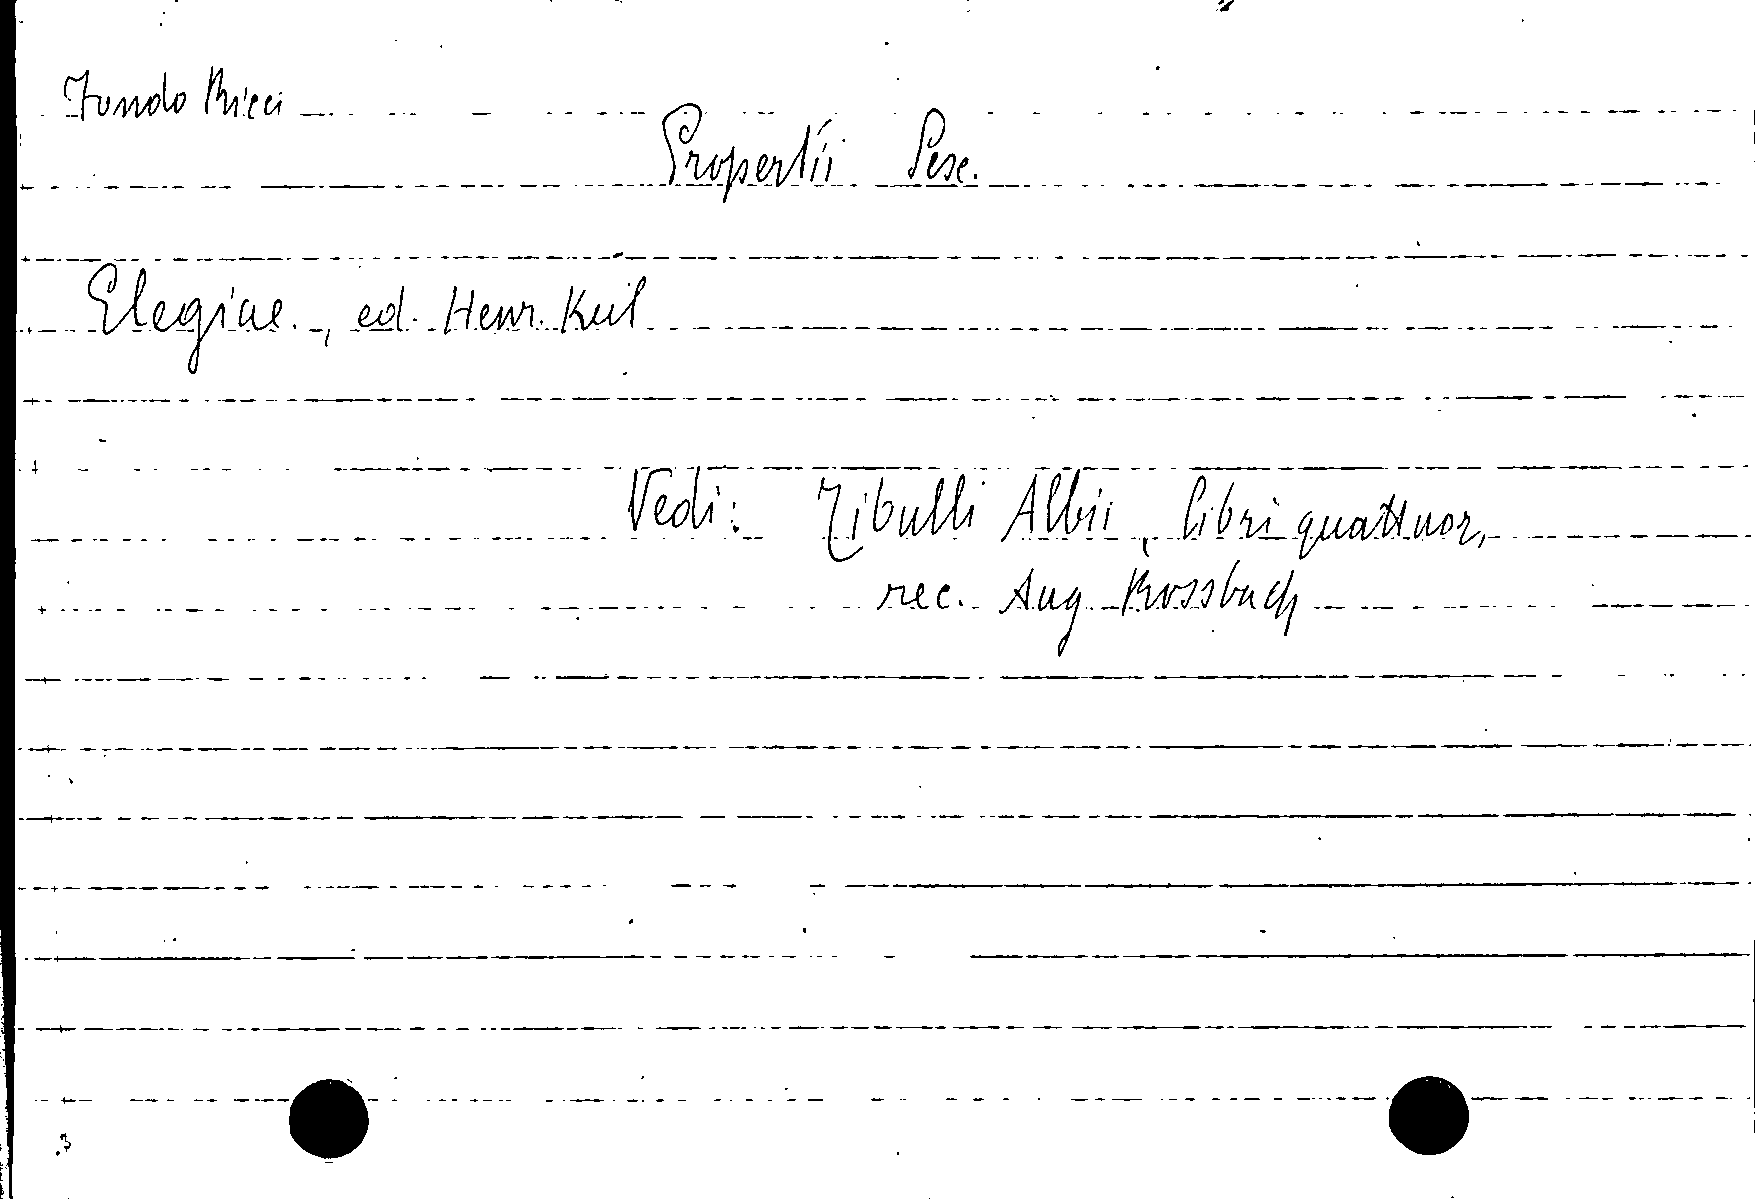 Fondo Ricci
Propertii Sex.
Elegiae., ed. Henr. Keil
Vedi: Tibulli Albii, libri quattuor,
rec. Aug Rossbach